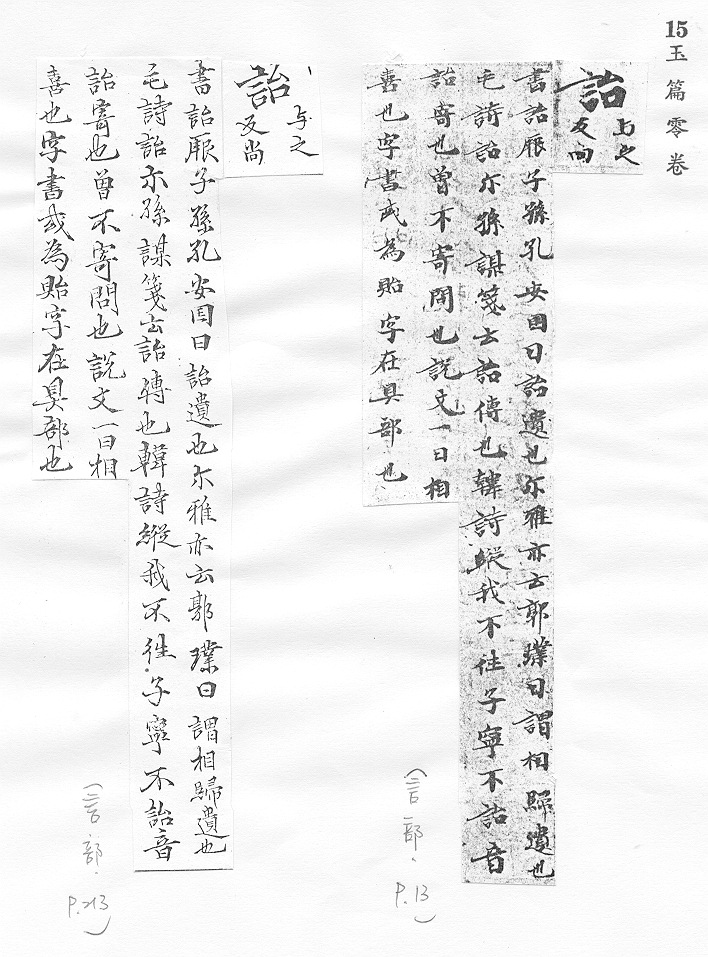 15
玉篇零卷
詒
与之
反尚
書詒厥子孫孔安国曰詒遺也尔雅亦云郭璞曰謂相歸遺也
毛詩詒尔孫謀箋云詒傳也韓詩縱我不往子寧不詒音
詒寄也曾不寄問也說文一曰相
喜也字書或為貽字在貝部也
(言部、
P.13)
詒
与之
反尚
書詒厥子孫孔安国曰詒遺也尔雅亦云郭璞曰謂相歸遺也
毛詩詒尔孫謀箋云詒傳也韓詩縱我不往子寧不詒音
詒寄也曾不寄問也說文一曰相
喜也字書或為貽字在貝部也
(言部、
P.213)